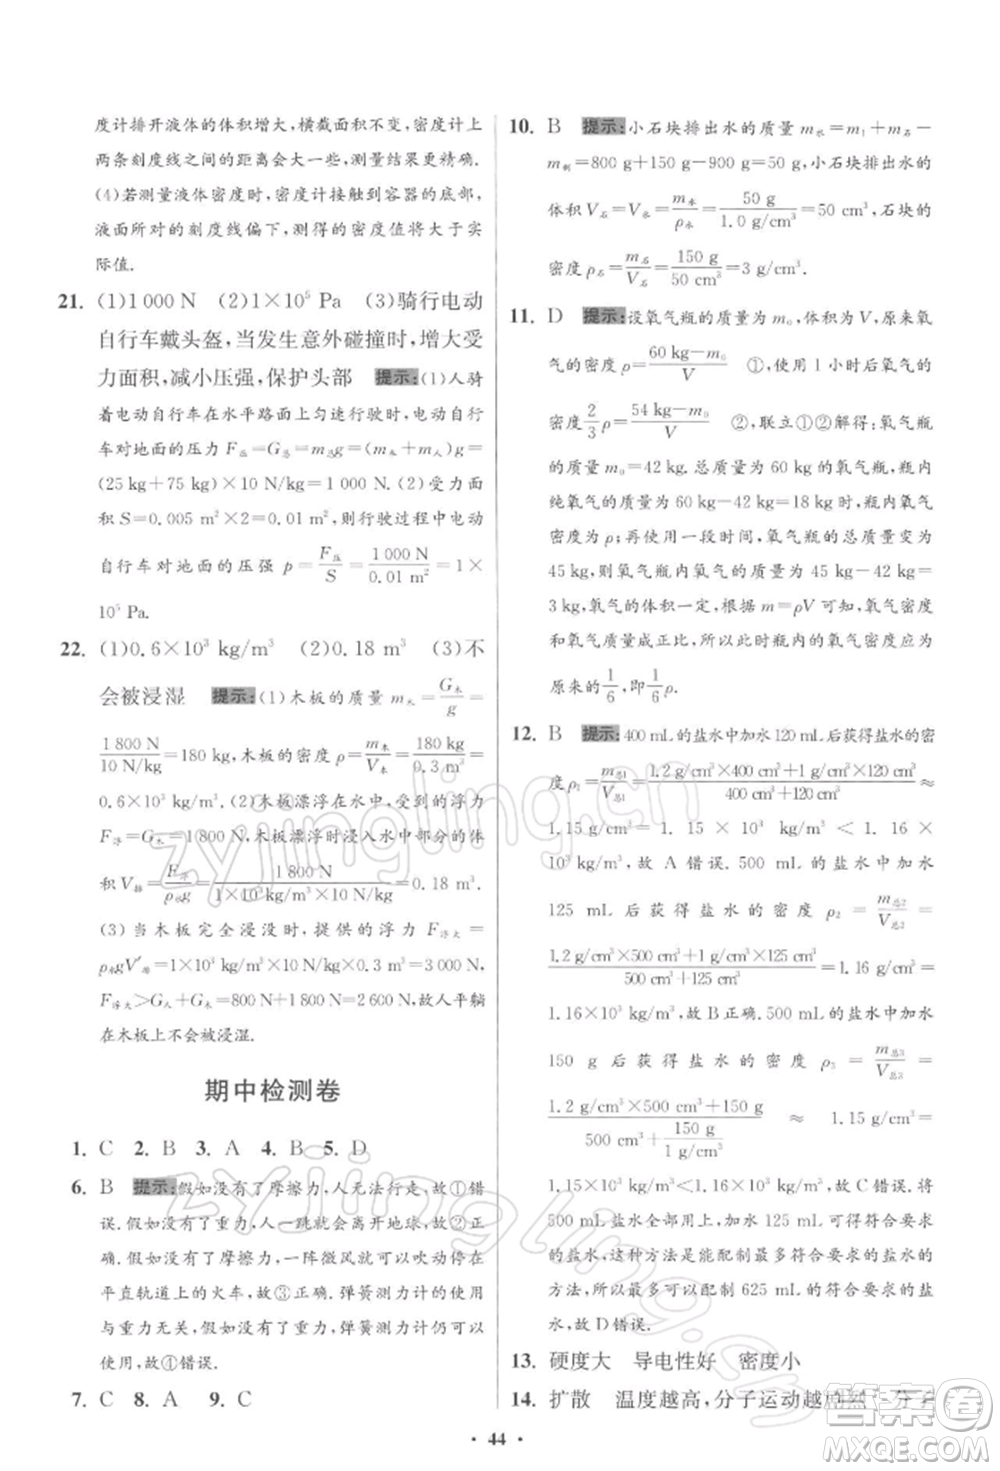 度计排开液体的体积增大，横截面积不变，密度计上
两条刻度线之间的距离会大一些，测量结果更精确.
(4)若测量液体密度时，密度计接触到容器的底部，
液面所对的刻度线偏下，测得的密度值将大于实
际值.
21. (1)1 000 N (2)1×10⁵ Pa (3)骑行电动
自行车戴头盔，当发生意外碰撞时，增大受
力面积，减小压强，保护头部 提示：(1)人骑
着电动自行车在水平路面上匀速行驶时，电动自行
车对地面的压力 F压=G总=m总g=(m车+m人)g=
(25 kg+75 kg)×10 N/kg=1 000 N. (2)受力面
积 S=0.005 m²×2=0.01 m²，则行驶过程中电动
自行车对地面的压强 p=F压/S=1 000 N/0.01 m²=1×
10⁵ Pa.
22. (1)0.6×10³ kg/m³ (2)0.18 m³ (3)不
会被浸湿 提示：(1)木板的质量 m木=G木/g=
1 800 N/10 N/kg=180 kg，木板的密度 ρ=m木/V木=180 kg/0.3 m³=
0.6×10³ kg/m³. (2)木板漂浮在水中，受到的浮力
F浮=G木=1 800 N，木板漂浮时浸入水中部分的体
积 V排=F浮/ρ水g=1 800 N/1×10³ kg/m³×10 N/kg=0.18 m³.
(3)当木板完全浸没时，提供的浮力 F浮大=
ρ水gV′排=1×10³ kg/m³×10 N/kg×0.3 m³=3 000 N，
F浮大>G人+G木=800 N+1 800 N=2 600 N，故人平躺
在木板上不会被浸湿.
期中检测卷
1. C 2. B 3. A 4. B 5. D
6. B 提示：假如没有了摩擦力，人无法行走，故①错
误. 假如没有了重力，人一跳就会离开地球，故②正
确. 假如没有了摩擦力，一阵微风就可以吹动停在
平直轨道上的火车，故③正确. 弹簧测力计的使用
与重力无关，假如没有了重力，弹簧测力计仍可以
使用，故④错误.
7. C 8. A 9. C
10. B 提示：小石块排出水的质量 m水=m₁+m石−
m剩=800 g+150 g−900 g=50 g，小石块排出水的
体积 V石=V水=m水/ρ水=50 g/1.0 g/cm³=50 cm³，石块的
密度 ρ石=m石/V石=150 g/50 cm³=3 g/cm³.
11. D 提示：设氧气瓶的质量为 m₀，体积为 V，原来氧
气的密度为 ρ=60 kg−m₀/V ①，使用 1 小时后氧气的
密度 2/3ρ=54 kg−m₀/V ②，联立①②解得：氧气瓶的
质量 m₀=42 kg. 总质量为 60 kg 的氧气瓶，瓶内
纯氧气的质量为 60 kg−42 kg=18 kg 时，瓶内氧气密度
为 ρ；再使用一段时间，氧气瓶的总质量变为
45 kg，则氧气瓶内氧气的质量为 45 kg−42 kg=
3 kg，氧气的体积不变，根据 m=ρV 可知，氧气密度
和氧气质量成正比，所以此时瓶内氧气密度应为
原来的 1/6，即 1/6ρ.
12. B 提示：400 mL的盐水中加水120 mL后获得盐水的密
度 ρ₁=m总1/V总1=1.2 g/cm³×400 cm³+1 g/cm³×120 cm³/400 cm³+120 cm³≈
1.15 g/cm³ = 1.15 × 10³ kg/m³ < 1.16 ×
10³ kg/m³，故 A 错误. 500 mL 的盐水中加水
125 mL 后获得盐水的密度 ρ₂=m总2/V总2=
1.2 g/cm³×500 cm³+1 g/cm³×125 cm³/500 cm³+125 cm³=1.16 g/cm³=
1.16×10³ kg/m³，故 B 正确. 500 mL 的盐水中加水
150 g 后获得盐水的密度 ρ₃=m总3/V总3=
1.2 g/cm³×500 cm³+150 g/500 cm³+150 g/1 g/cm³ ≈ 1.15 g/cm³ =
1.15×10³ kg/m³<1.16×10³ kg/m³，故 C 错误. 将
500 mL 盐水全部用上，加水 125 mL 可以获得符合要求
的盐水，这种方法是能配制最多符合要求的盐水的
方法，所以最多可以配制 625 mL 符合要求的盐水，
故 D 错误.
13. 硬度大 导电性好 密度小
14. 扩散 温度越高，分子运动越剧烈 分子
• 44 •
zyjingling.cn
zyjingling.cn
答案圈
MXQE.COM